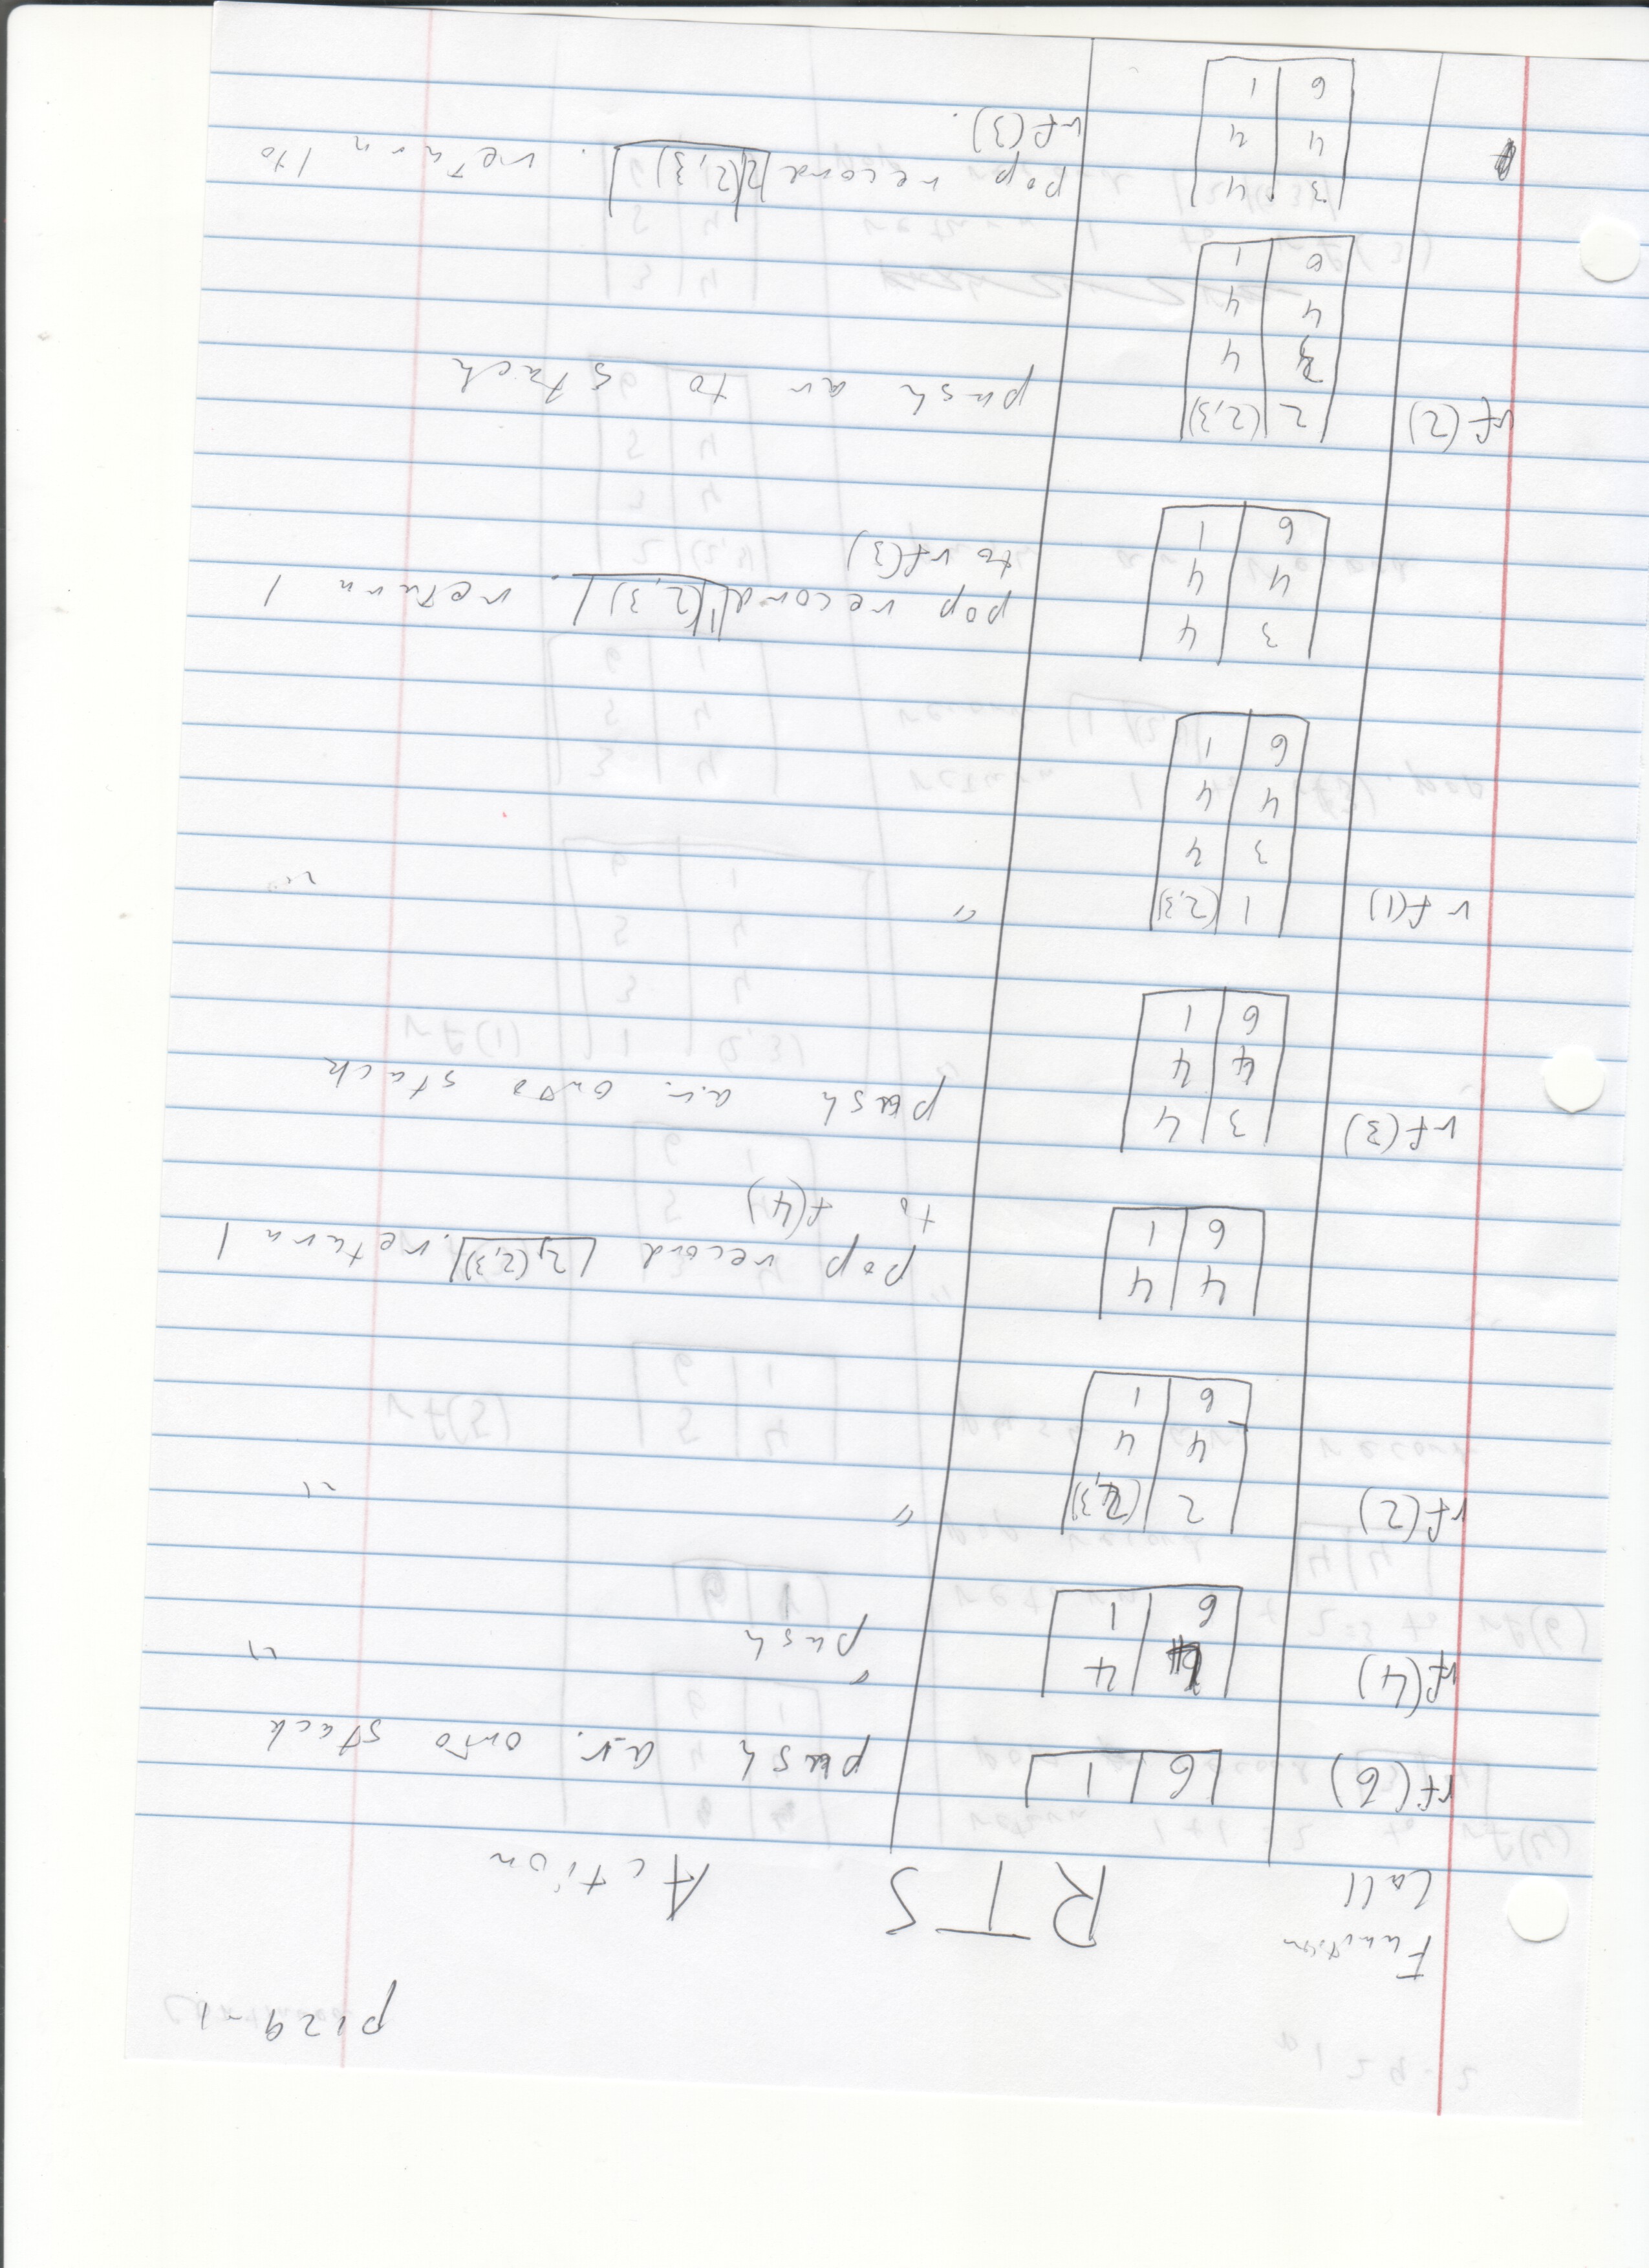 p129-1
Function
Call
RTS
Action
rf(6)
6 | 1
push a.r. onto stack
rf(4)
4
6 | 1
" push "
rf(2)
2 | (2,3)
4 | 4
6 | 1
" "
4 | 4
6 | 1
pop record 2,(2,3). return 1
to f(4)
rf(3)
3 | 4
4 | 4
6 | 1
push a.r. onto stack
rf(1)
1 | (2,3)
3 | 4
4 | 4
6 | 1
" "
3 | 4
4 | 4
6 | 1
pop record 1|(2,3). return 1
to rf(3)
rf(2)
2 | (2,3)
3 | 4
4 | 4
6 | 1
push ar to stack
3 | 4
4 | 4
6 | 1
pop record 2|(2,3). return 1 to
rf(3).